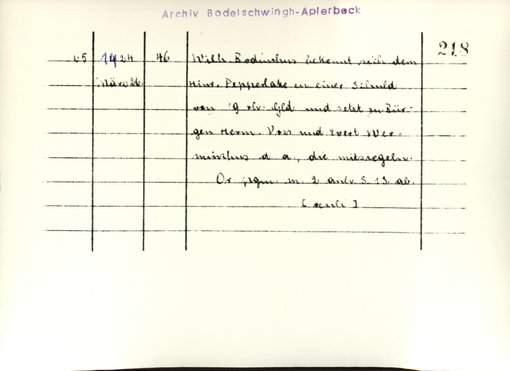 Archiv Bodelschwingh-Aplerbeck
218
65 1424 46 Wilh. bekennt sich dem
März 26 Hinr. Pepperlake zu einer Schuld
von 19 rh. Gld und setzt zu Bür-
gen Herm. Voss und Evert Wer-
d. a., die mitsiegeln.
Or. Pgm. m. 2 anh. S. 1 ab.